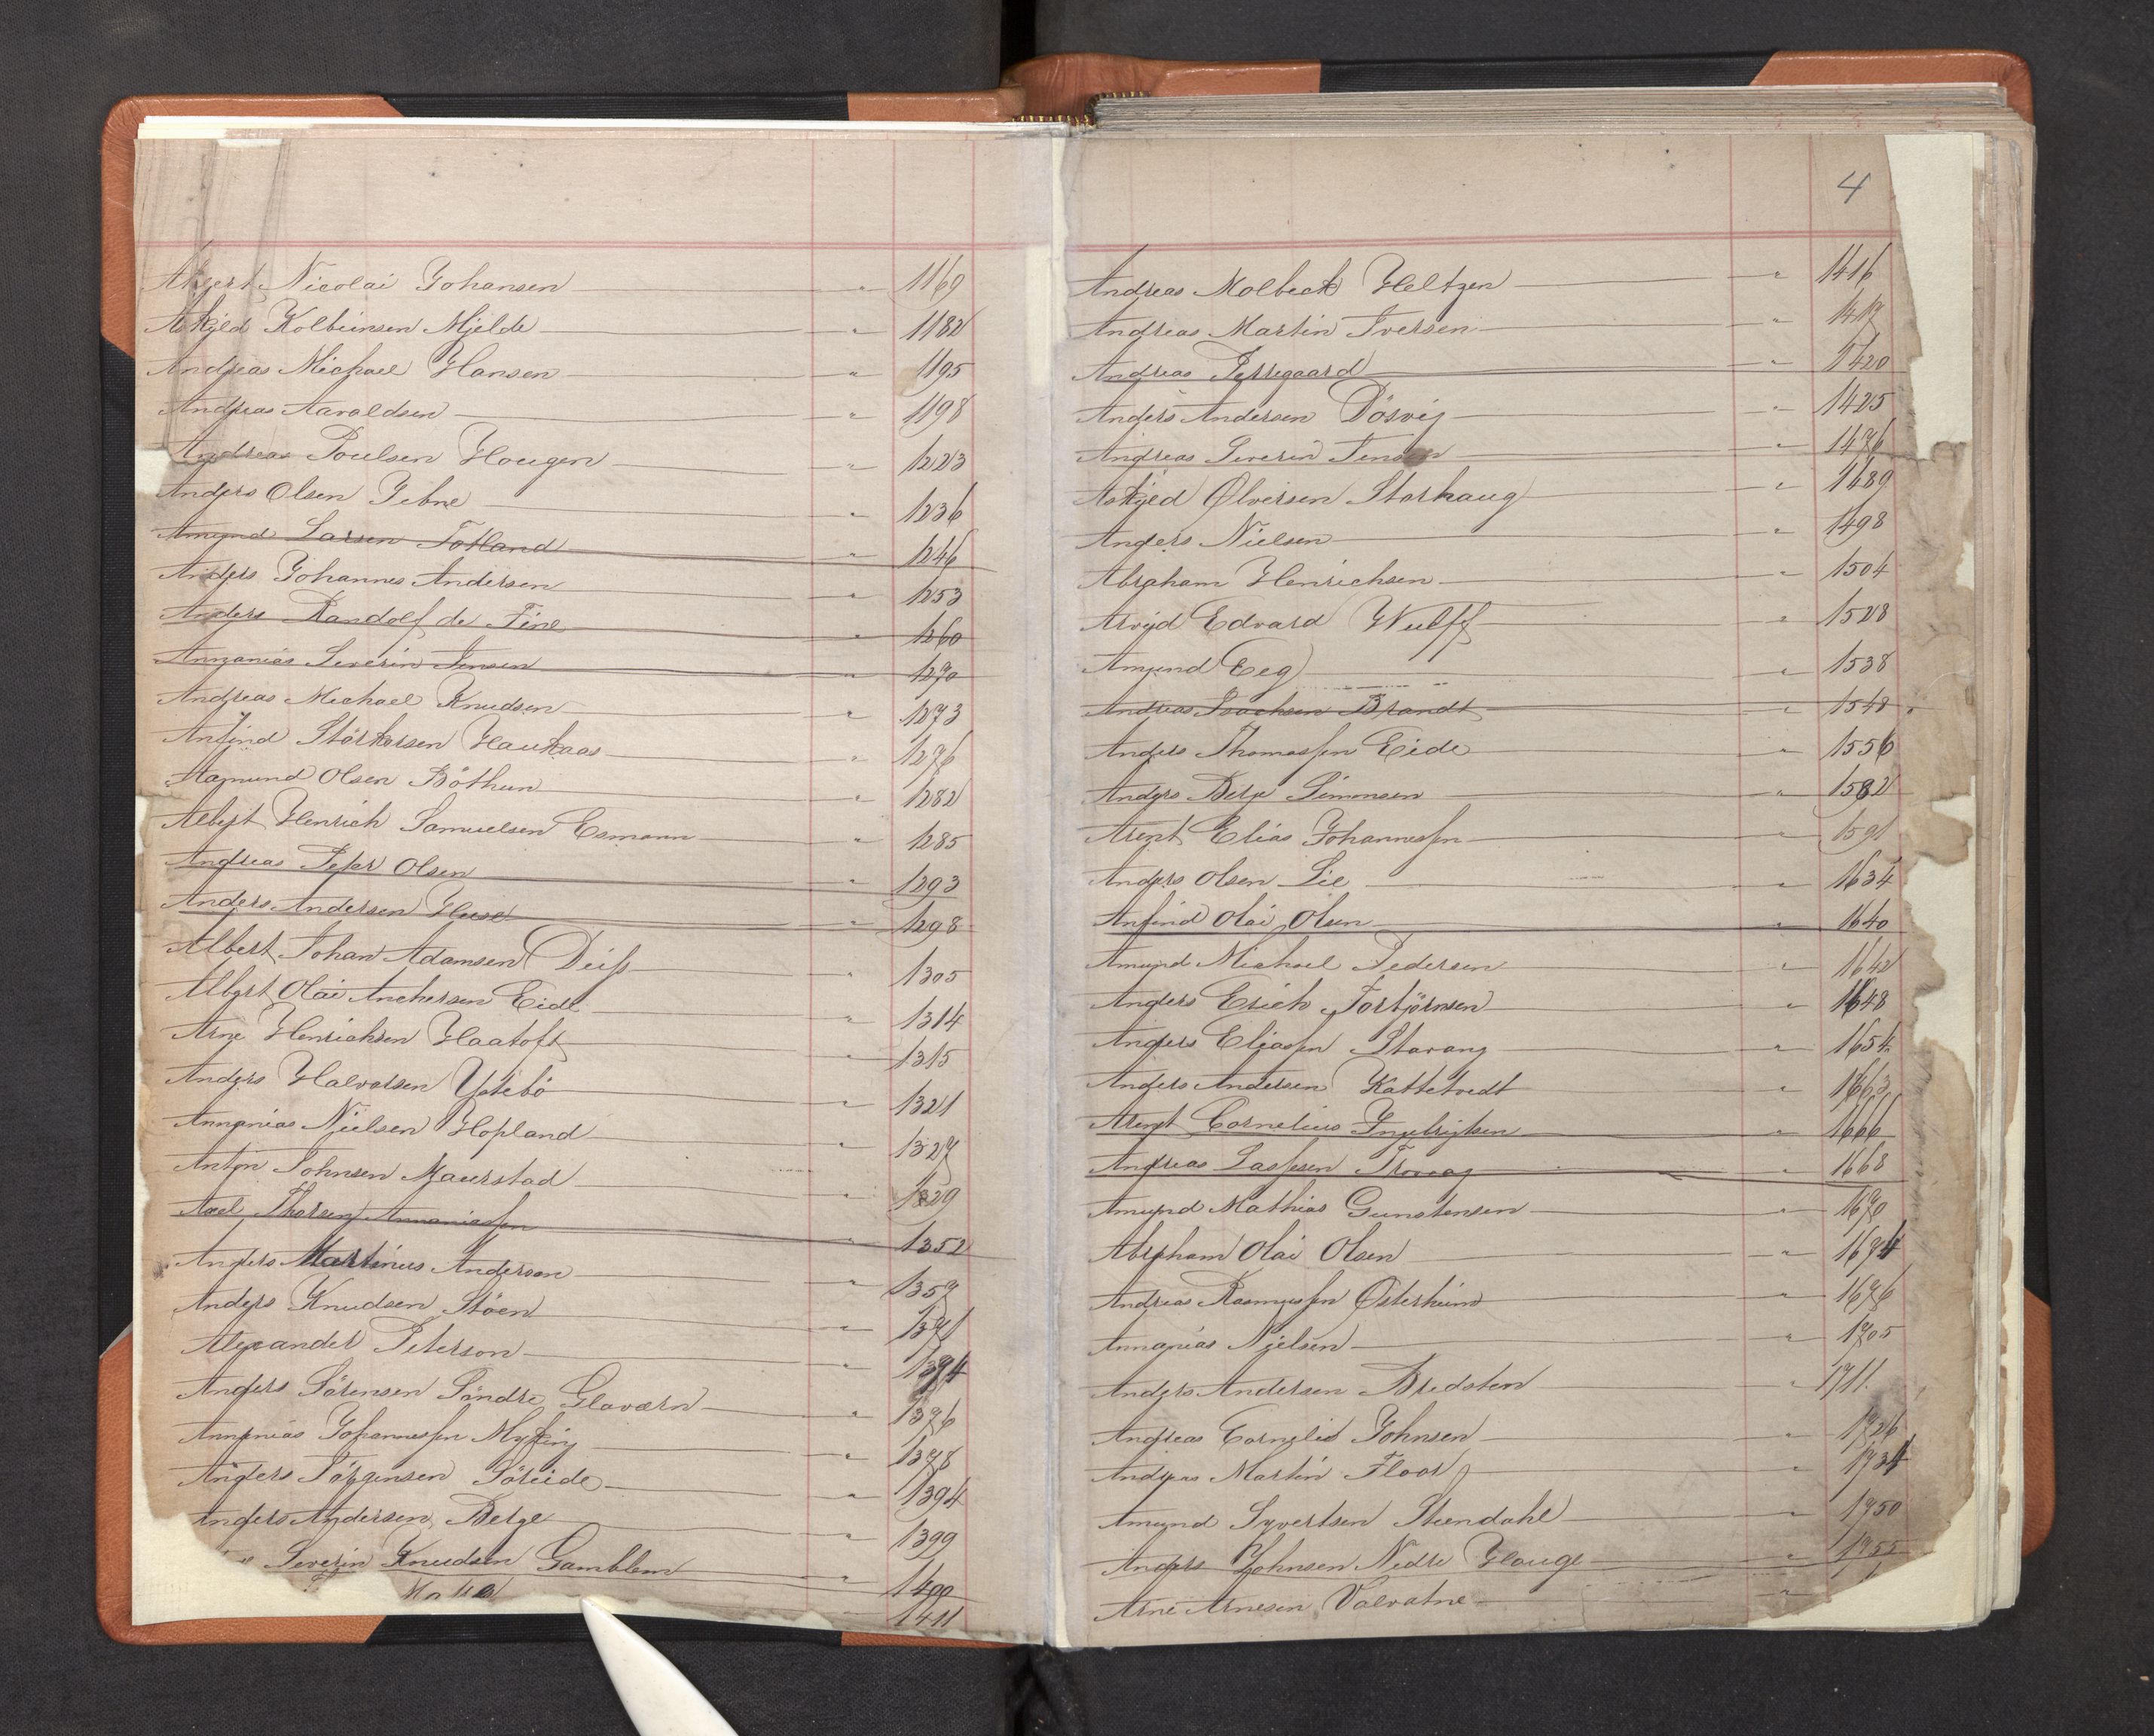 Albert Nicolai Johansen " 1169
Askjeld Kolbeinsen Mjelde " 1182
Andreas Michael Hansen " 1195
Andreas Aaroldsen " 1198
Andreas Poulsen Hougen " 1223
Anders Olsen Gebne " 1236
Amund Larsen Totland " 1246
Anders Johannes Andersen " 1253
Anders Randolf de Fine " 1260
Annanias Severin Jensen " 1270
Andreas Michael Knudsen " 1273
Anfind Störkersen Haukaas " 1276
Aamund Olsen Böthun " 1282
Albert Henrich Samuelsen Esmann " 1285
Andreas Peter Olsen " 1293
Anders Andersen Huse " 1298
Albert Johan Adamsen Deiss " 1305
Albert Olai Anchersen Eide " 1314
Arne Henrichsen Haatoft " 1315
Anders Halvorsen Ystebö " 1321
Annanias Nielsen Hopland " 1327
Anton Johnsen Maurstad " 1329
Axel Thorsen Ananiassen " 1352
Anders Martinus Andersen " 1357
Anders Knudsen Stöen " 1371
Alexander Peterson " 1374
Anders Sörensen Söndre Glaværn " 1376
Annanias Johannessen Myking " 1378
Anders Jörgensen Söreide " 1394
Anders Andersen Berge " 1399
Severin Knudsen Gamblem " 1400
1411
4
Andreas Molbeck Heltzen " 1416
Andreas Martin Iversen " 1417
Andreas Terregaard " 1420
Anders Andersen Dösvig " 1425
Andreas Severin Jensen " 1476
Askjed Ølversen Storhaug " 1489
Anders Nielsen " 1498
Abraham Henrichsen " 1504
Arvid Edvard Wulff " 1528
Amund Eeg " 1538
Andreas Isachsen Brandt " 1548
Anders Thomassen Eide " 1556
Anders Berge Simonsen " 1582
Arent Elias Johannessen " 1591
Anders Olsen Lie " 1634
Anfind Olai Olsen " 1640
Amund Michael Pedersen " 1642
Anders Erich Torbjörnsen " 1648
Anders Eliassen Stavang " 1654
Anders Andersen Kattetvedt " 1663
Arent Cornelius Ingebrigtsen " 1666
Andreas Lassesen Trovaag " 1668
Amund Mathias Gunstensen " 1670
Abraham Olai Olsen " 1674
Andreas Rasmussen Østerheim " 1676
Annanias Nielsen " 1705
Anders Andersen Bredsten " 1711.
Andreas Cornelis Johnsen " 1726
Andreas Martin Floor " 1734
Amund Syvertsen Steendahl " 1750
Anders Johnsen Nedre Hauge " 1755
Arne Arnesen Valvatne "